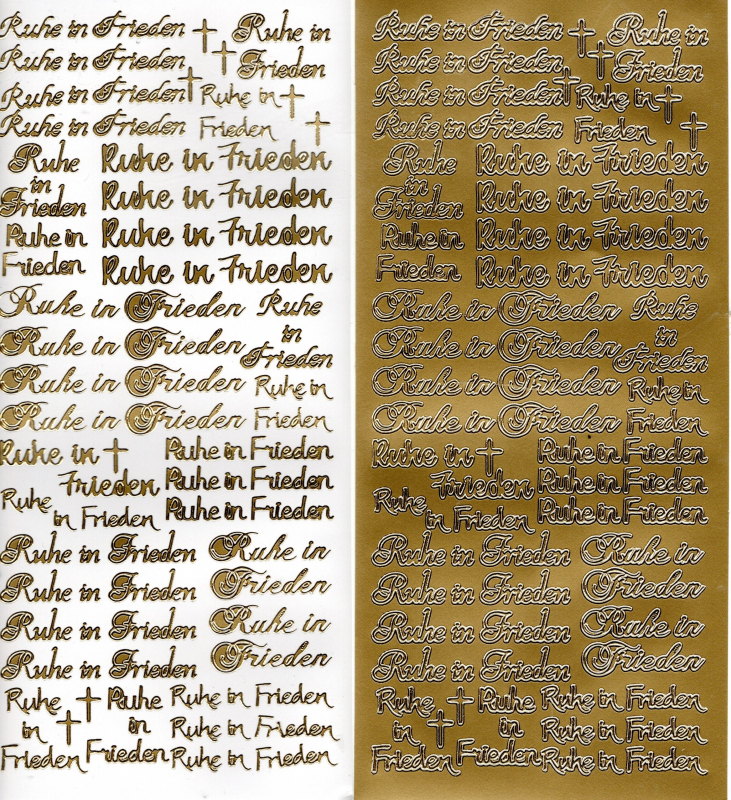 Ruhe in Frieden † Ruhe in
Ruhe in Frieden † Frieden
Ruhe in Frieden † Ruhe in †
Ruhe in Frieden Frieden †
Ruhe Ruhe in Frieden
in Ruhe in Frieden
Frieden
Ruhe in Ruhe in Frieden
Frieden Ruhe in Frieden
Ruhe in Frieden Ruhe
in
Ruhe in Frieden Frieden
Ruhe in Frieden Ruhe in
Ruhe in Frieden Frieden
Ruhe in † Ruhe in Frieden
Frieden Ruhe in Frieden
Ruhe Ruhe in Frieden
in Frieden
Ruhe in Frieden Ruhe in
Ruhe in Frieden Frieden
Ruhe in Frieden Ruhe in
Ruhe in Frieden Frieden
Ruhe † Ruhe Ruhe in Frieden
in † in Ruhe in Frieden
Frieden Frieden Ruhe in Frieden
Ruhe in Frieden † Ruhe in
Ruhe in Frieden † Frieden
Ruhe in Frieden † Ruhe in †
Ruhe in Frieden Frieden †
Ruhe Ruhe in Frieden
in Ruhe in Frieden
Frieden
Ruhe in Ruhe in Frieden
Frieden Ruhe in Frieden
Ruhe in Frieden Ruhe
in
Ruhe in Frieden Frieden
Ruhe in Frieden Ruhe in
Ruhe in Frieden Frieden
Ruhe in † Ruhe in Frieden
Frieden Ruhe in Frieden
Ruhe Ruhe in Frieden
in Frieden
Ruhe in Frieden Ruhe in
Ruhe in Frieden Frieden
Ruhe in Frieden Ruhe in
Ruhe in Frieden Frieden
Ruhe † Ruhe Ruhe in Frieden
in † in Ruhe in Frieden
Frieden Frieden Ruhe in Frieden